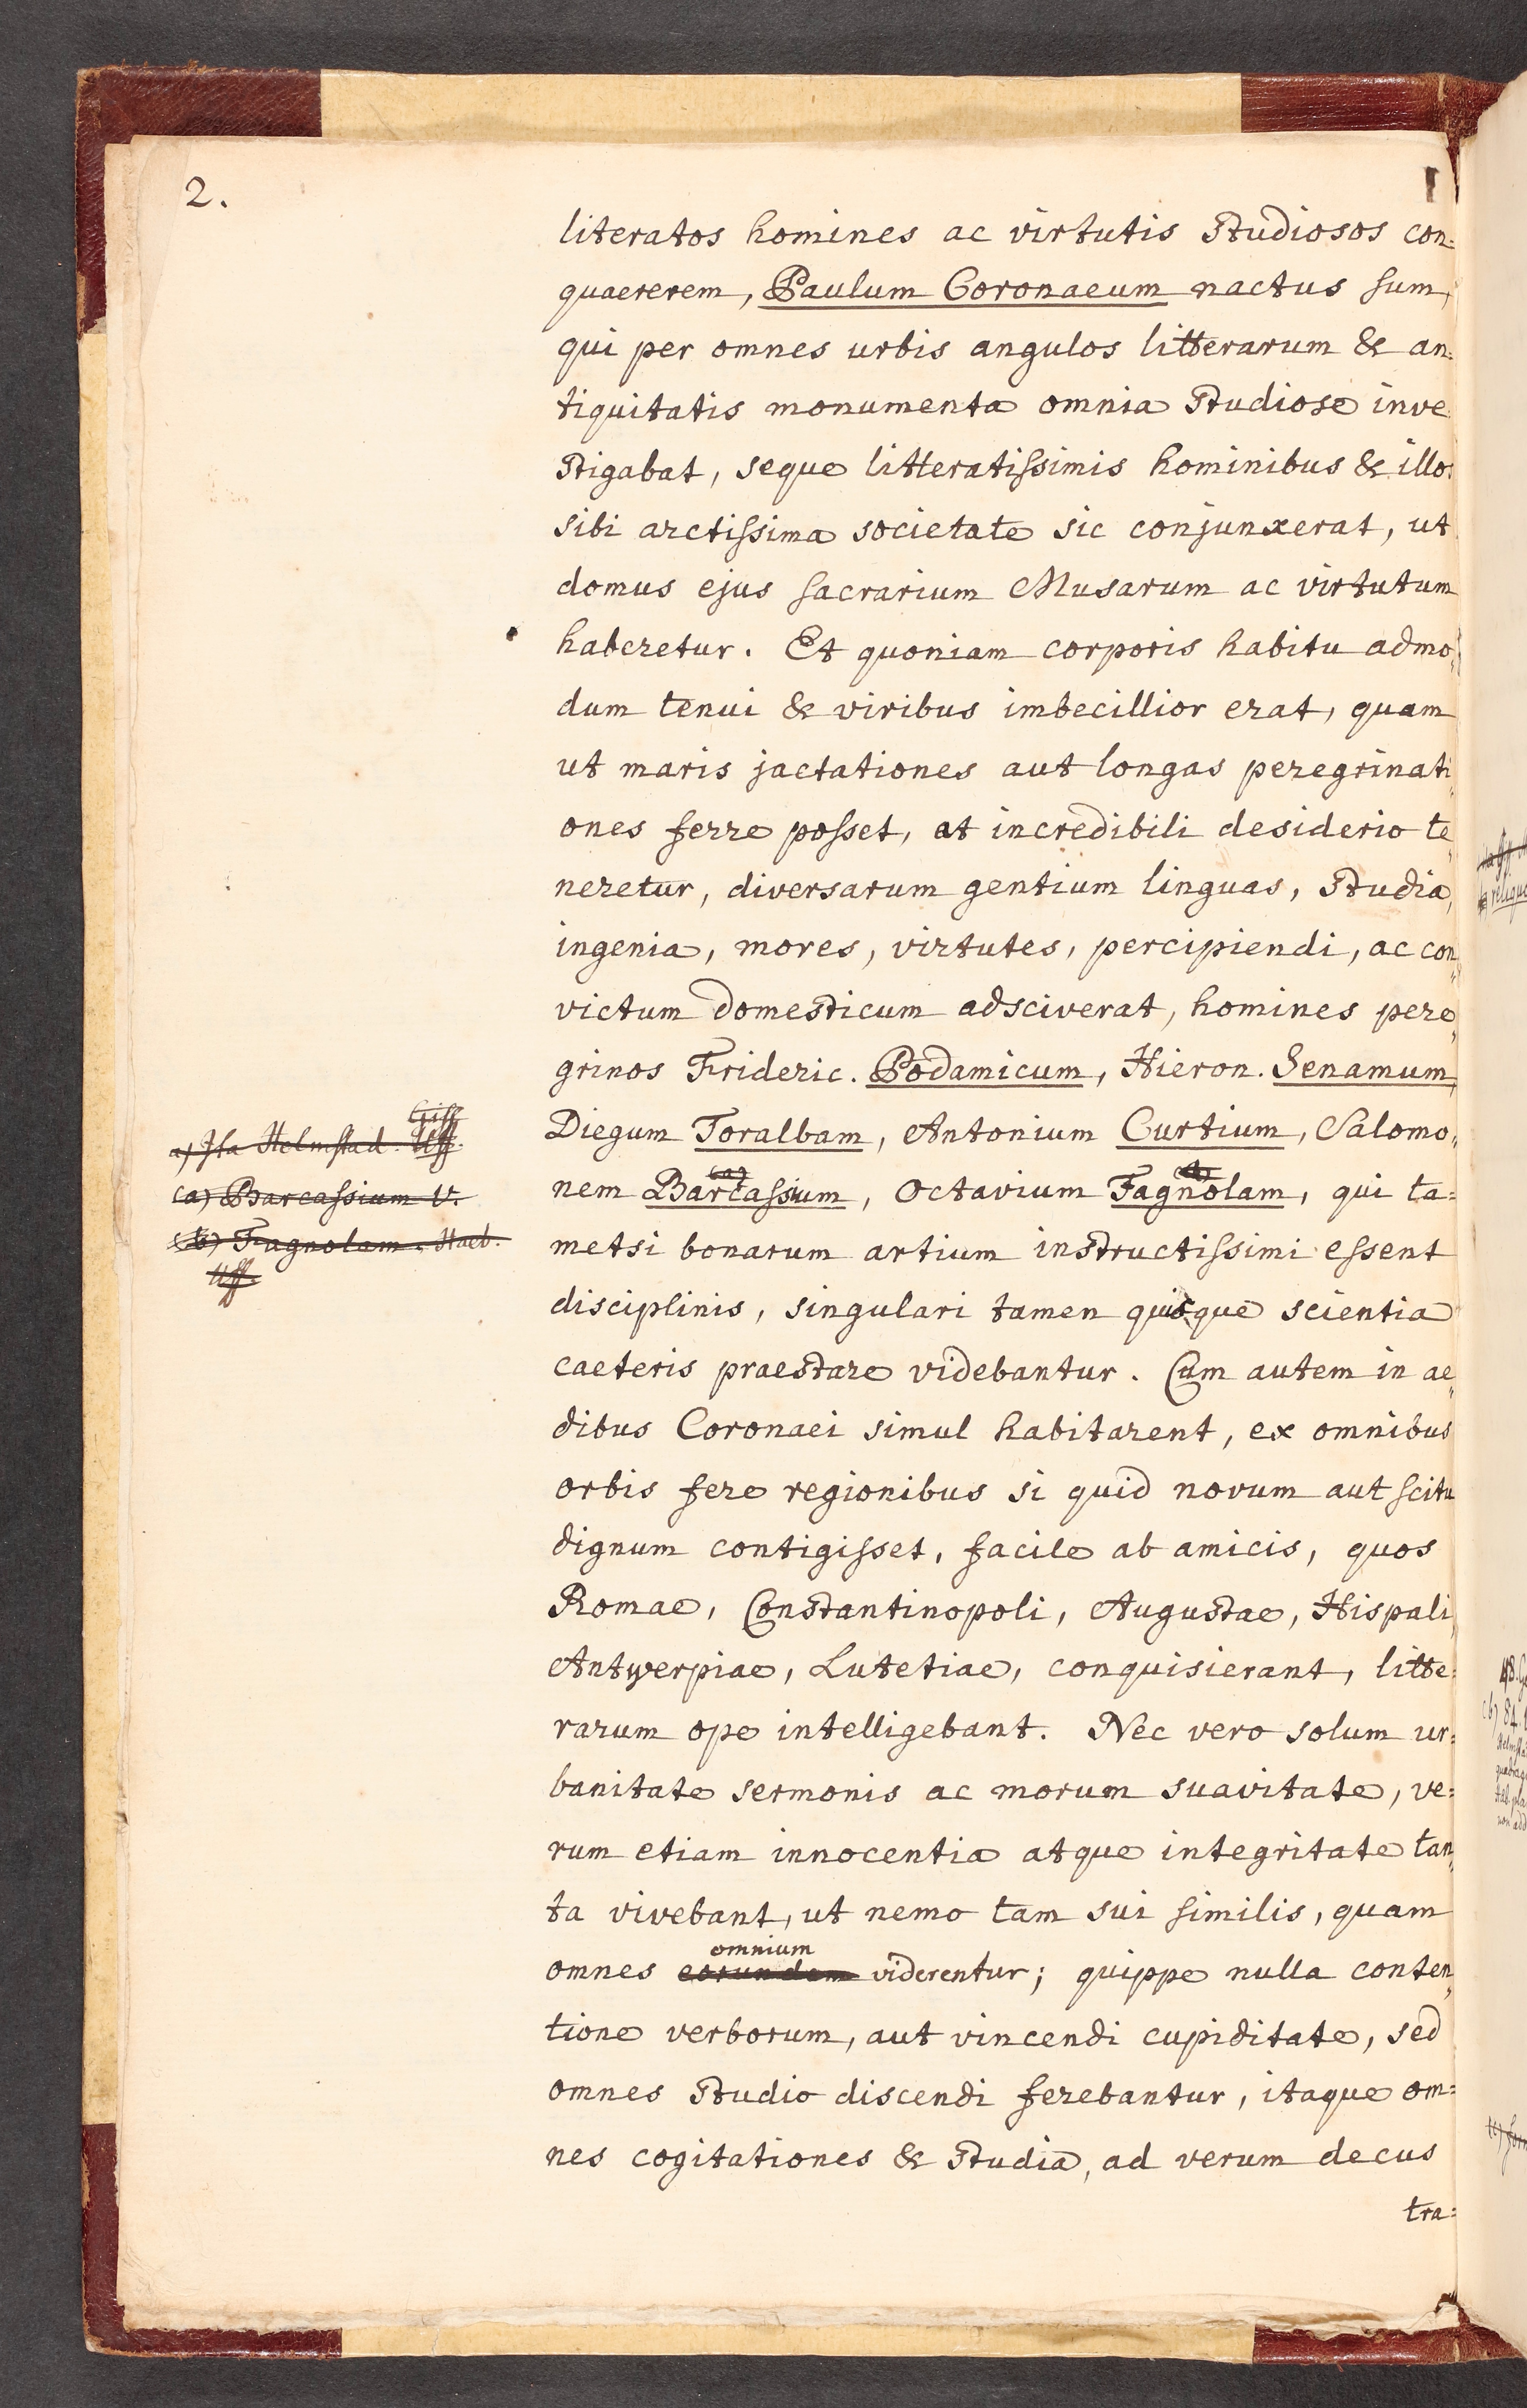 2.
literatos homines ac virtutis Studiosos con=
quaererem, Paulum Coronaeum nactus sum,
qui per omnes urbis angulos litterarum & an=
tiquitatis monumenta omnia Studiose inve=
Stigabat, seque litteratissimis hominibus & illos
sibi arctissima societate sic conjunxerat, ut
domus ejus sacrarium Musarum ac virtutum
haberetur. Et quoniam corporis habitu admo„
dum tenui & viribus imbecillior erat, quam
ut maris jactationes aut longas peregrinati„
ones ferre posset, at incredibili desiderio te„
neretur, diversarum gentium linguas, Studia,
ingenia, mores, virtutes, percipiendi, ac con„
victum domesticum adsciverat, homines pere„
grinos Frideric. Podamicum, Hieron. Senamum,
Diegum Toralbam, Antonium Curtium, Salomo„
nem Barcassium, Octavium Fagnolam, qui ta=
metsi bonarum artium instructissimi essent
disciplinis, singulari tamen quisque scientia
caeteris praestare videbantur. Cum autem in ae„
dibus Coronaei simul habitarent, ex omnibus
orbis fere regionibus si quid novum aut scitu
dignum contigisset, facile ab amicis, quos
Romae, Constantinopoli, Augustae, Hispali,
Antwerpiae, Lutetiae, conquisierant, litte=
rarum ope intelligebant. Nec vero solum ur=
banitate sermonis ac morum suavitate, ve=
rum etiam innocentia atque integritate tan„
ta vivebant, ut nemo tam sui similis, quam
omnium
omnes eorundem viderentur; quippe nulla conten„
tione verborum, aut vincendi cupiditate, sed
omnes Studio discendi ferebantur, itaque om=
nes cogitationes & Studia, ad verum decus
tra=
a) Ita Helmstad. Uff.
(a) Barcassium V.
(b) Fagnolam. Haeb.
Uff.